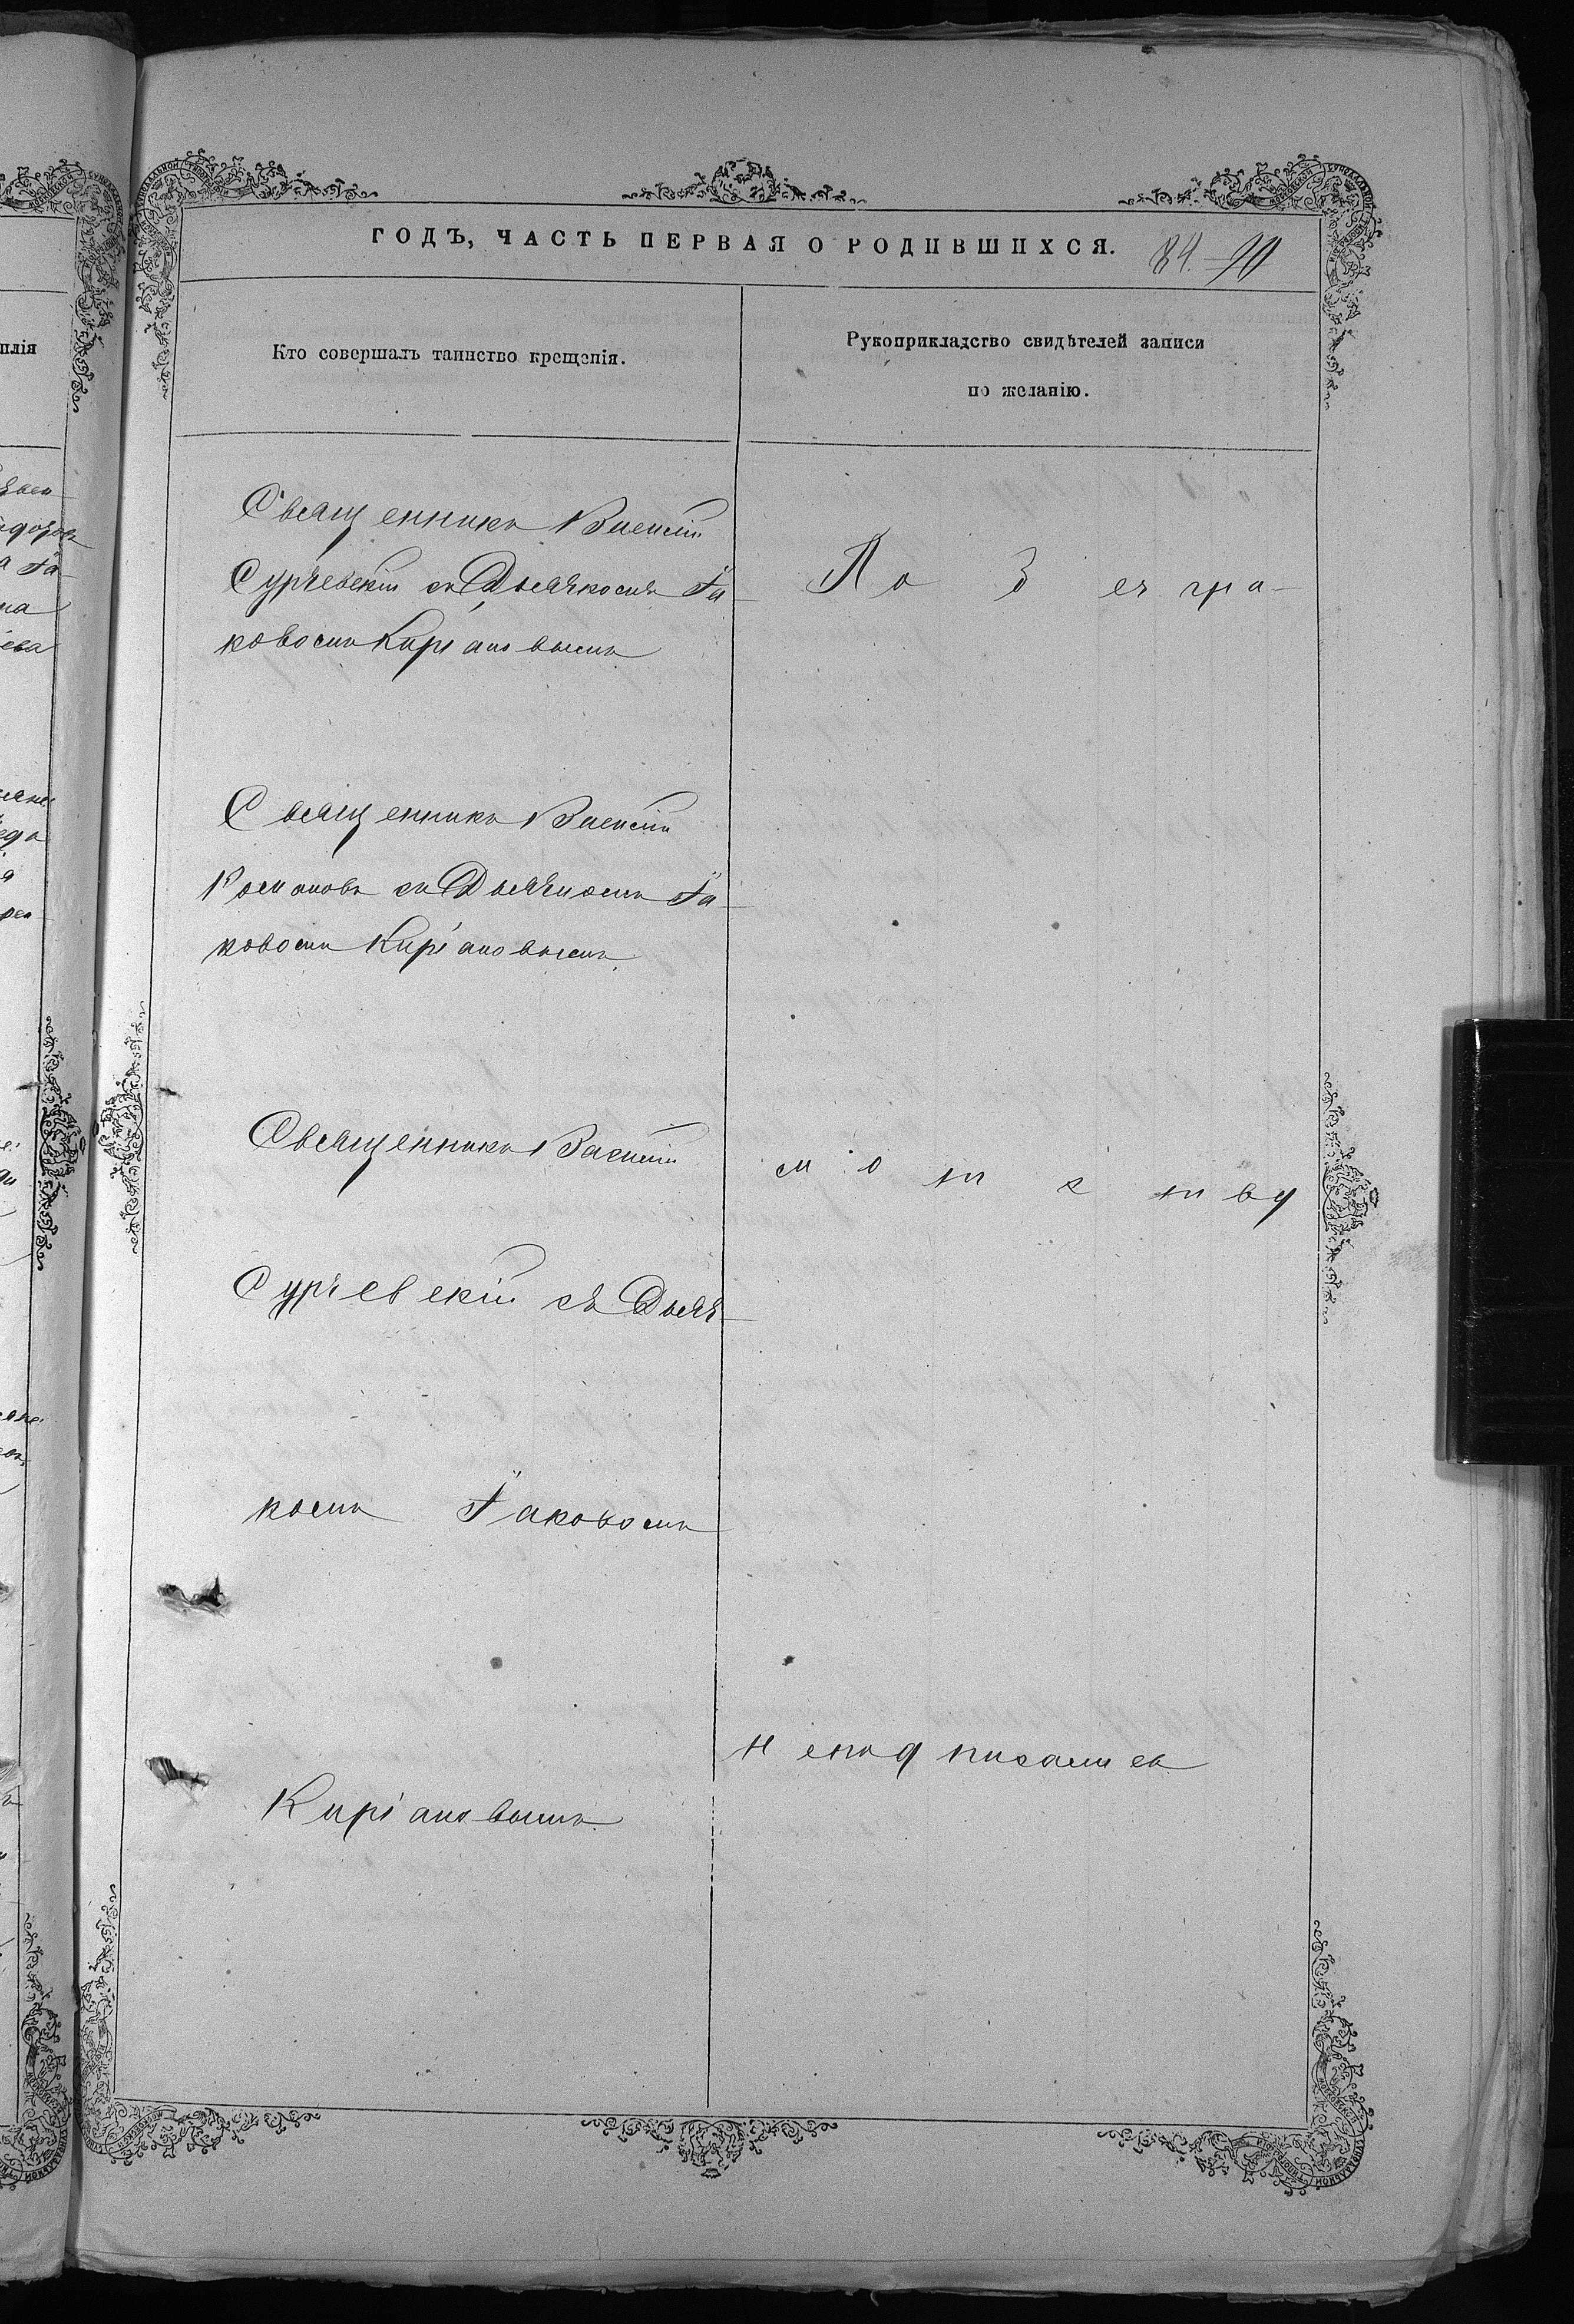 ГОДЪ, ЧАСТЬ ПЕРВАЯ О РОДИВШИХСЯ.
84. 90
Кто совершалъ таинство крещенія.
Рукоприкладство свидѣтелей записи
по желанію.
Священникъ Василій
Сурчевскій съ Дьячкомъ Іа-
ковомъ Киріановымъ
По безгра-
Священникъ Василій
Романовъ съ Дьячкомъ Іа-
ковомъ Киріановымъ
Священникъ Василій
Сурчевскій съ Дьяч-
комъ Іаковомъ
Киріановымъ
мотству
неподписались